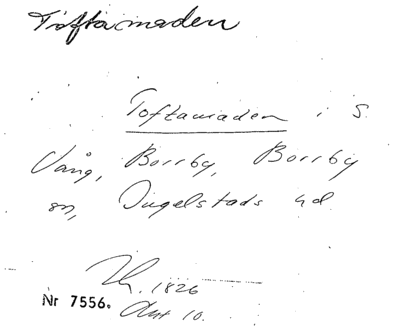 Toftamaden
Toftamaden i S.
Vång, Borrby, Borrby
sn, Ingelstads hd.
1826
Nr 7556. Akt 10.